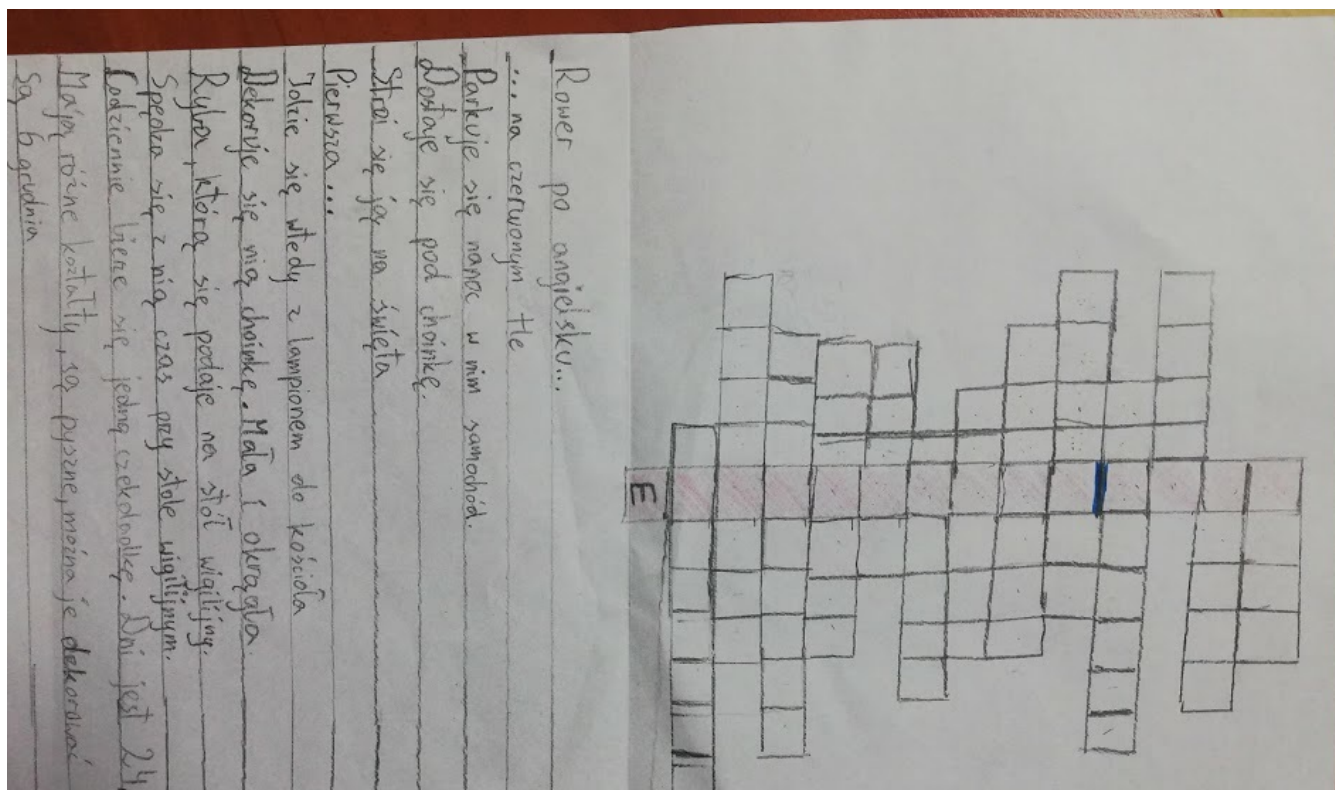 Rower po angielsku...
... na czerwonym tle
Parkuje się nanoc w nim samochód.
Dostaje się pod choinkę.
Stroi się ją na święta
Pierwsza...
Idzie się wtedy z lampionem do kościoła
Dekoruje się nią choinkę. Mała i okrągła.
Ryba, którą się podaje na stół wigilijny.
Spędza się z nią czas przy stole wigilijnym.
Codziennie bierze się jedną czekoladkę. Dni jest 24.
Mają różne kształty, są pyszne, można je dekorować
Są 6 grudnia
E